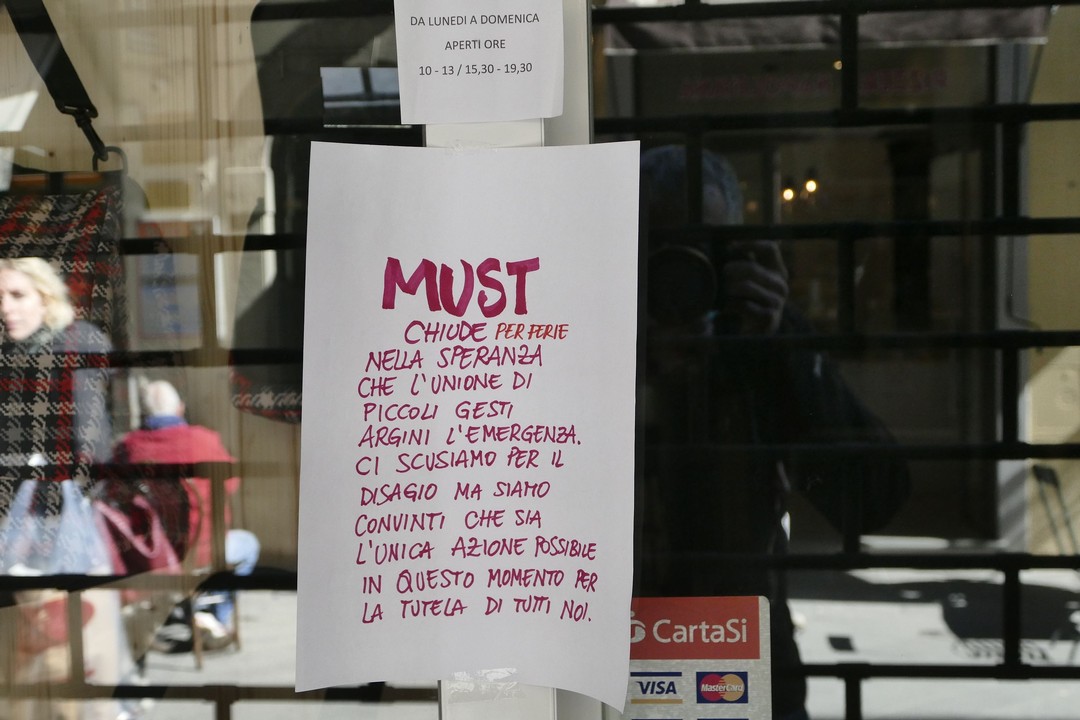 DA LUNEDI A DOMENICA
APERTI ORE
10 - 13 / 15,30 - 19,30
MUST
CHIUDE PER FERIE
NELLA SPERANZA
CHE L'UNIONE DI
PICCOLI GESTI
ARGINI L'EMERGENZA.
CI SCUSIAMO PER IL
DISAGIO MA SIAMO
CONVINTI CHE SIA
L'UNICA AZIONE POSSIBILE
IN QUESTO MOMENTO PER
LA TUTELA DI TUTTI NOI.
CartaSi
VISA
MasterCard